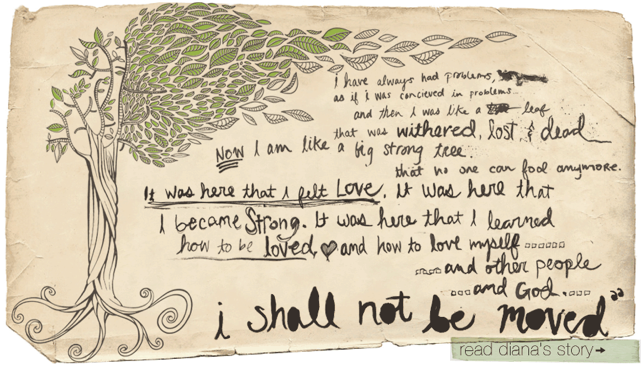 i have always had problems,
as if i was concieved in problems...
and then I was like a leaf
that was withered, lost, & dead
NOW I am like a big strong tree.
that no one can fool anymore.
It was here that I felt Love, it was here that
I became Strong. It was here that I learned
how to be loved, and how to love myself
and other people
and God.
i shall not be moved"
read diana's story